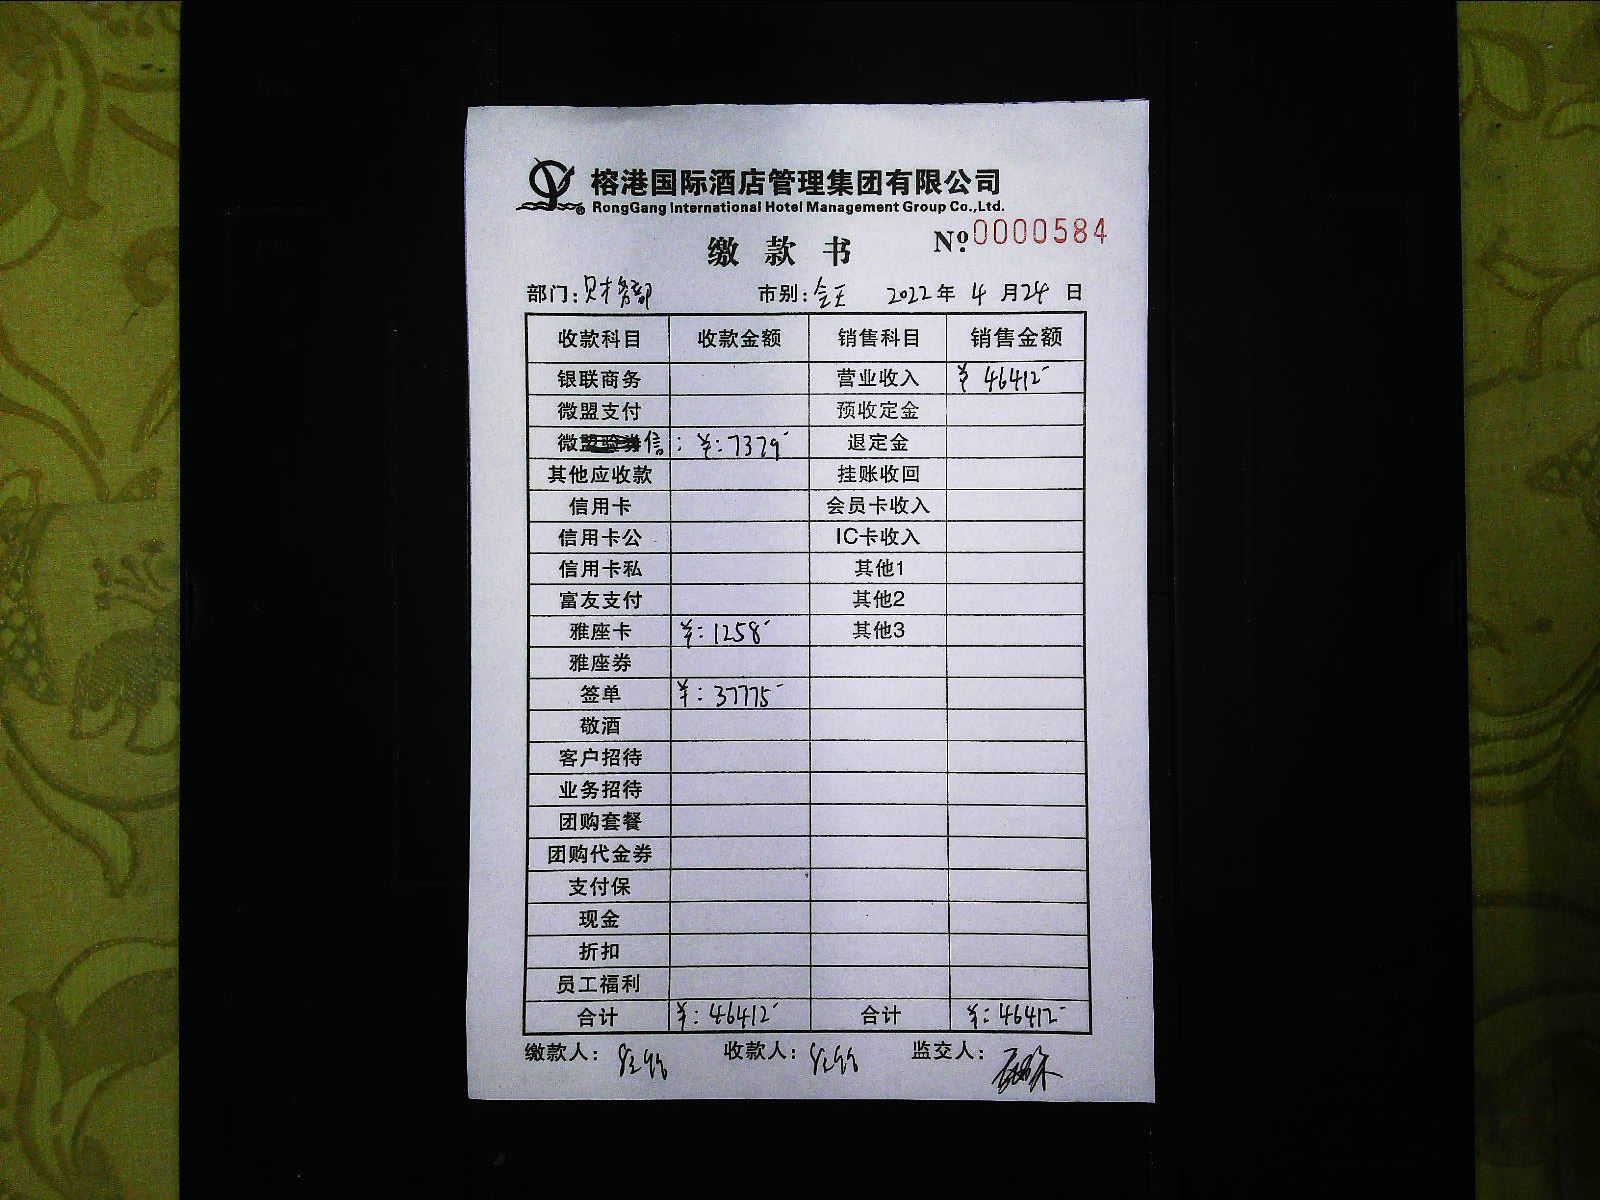 榕港国际酒店管理集团有限公司
RongGang International Hotel Management Group Co.,Ltd.
缴款书 Nº:0000584
部门:财务部 市别:全天 2022年4月24日
收款科目 收款金额 销售科目 销售金额
银联商务 营业收入 ¥ 46412-
微盟支付 预收定金
微信:¥:7379- 退定金
其他应收款 挂账收回
信用卡 会员卡收入
信用卡公 IC卡收入
信用卡私 其他1
富友支付 其他2
雅座卡 ¥:1258- 其他3
雅座券
签单 ¥:37775-
敬酒
客户招待
业务招待
团购套餐
团购代金券
支付保
现金
折扣
员工福利
合计 ¥:46412- 合计 ¥:46412-
缴款人: 收款人: 监交人: